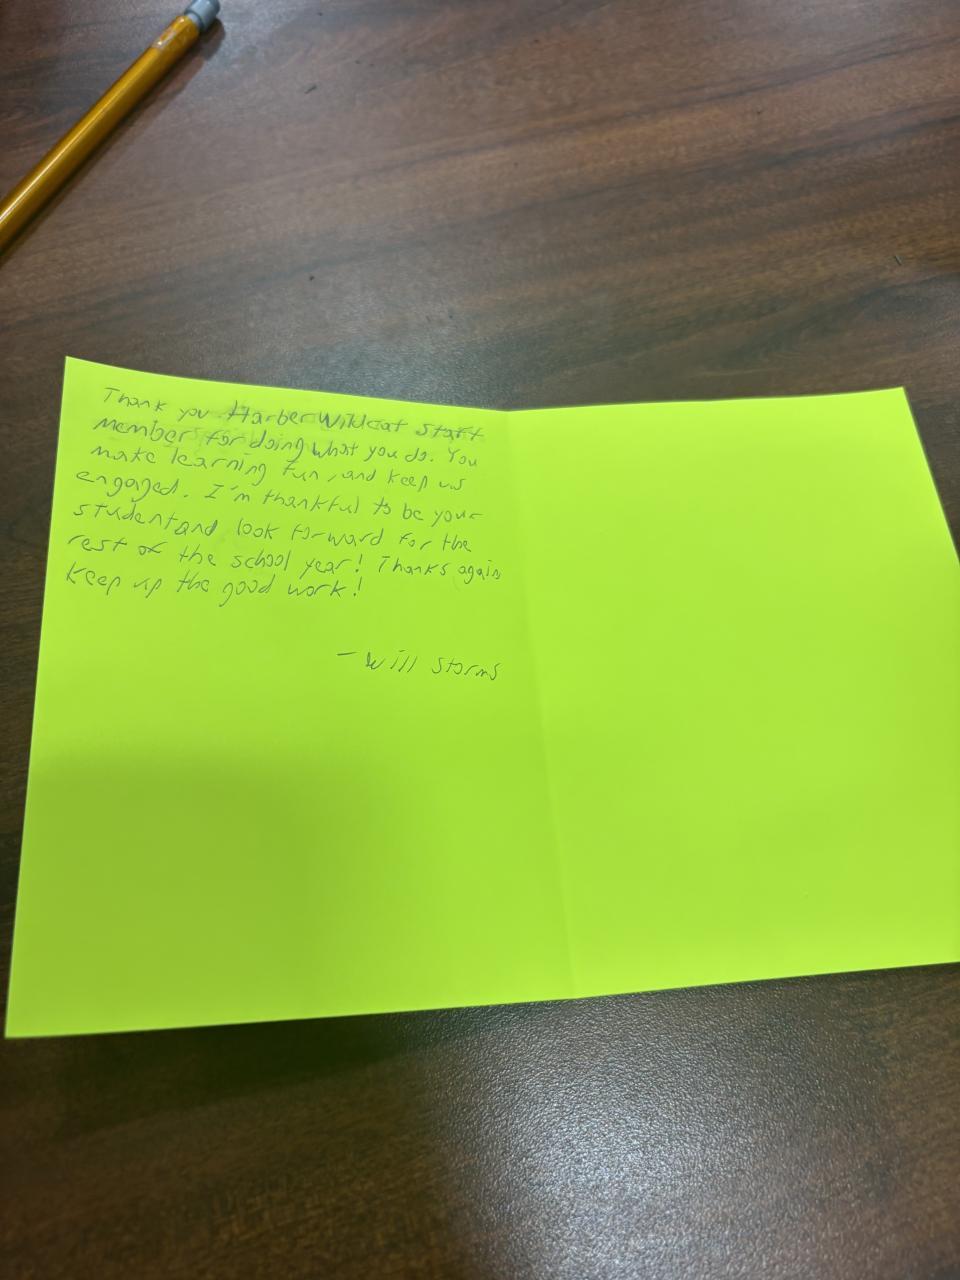 Thank you Harber Wildcat Staff
Members for doing what you do. You
make learning fun, and keep us
engaged. I'm thankful to be your
student and look forward for the
rest of the school year! Thanks again
Keep up the good work!
- Will Storms